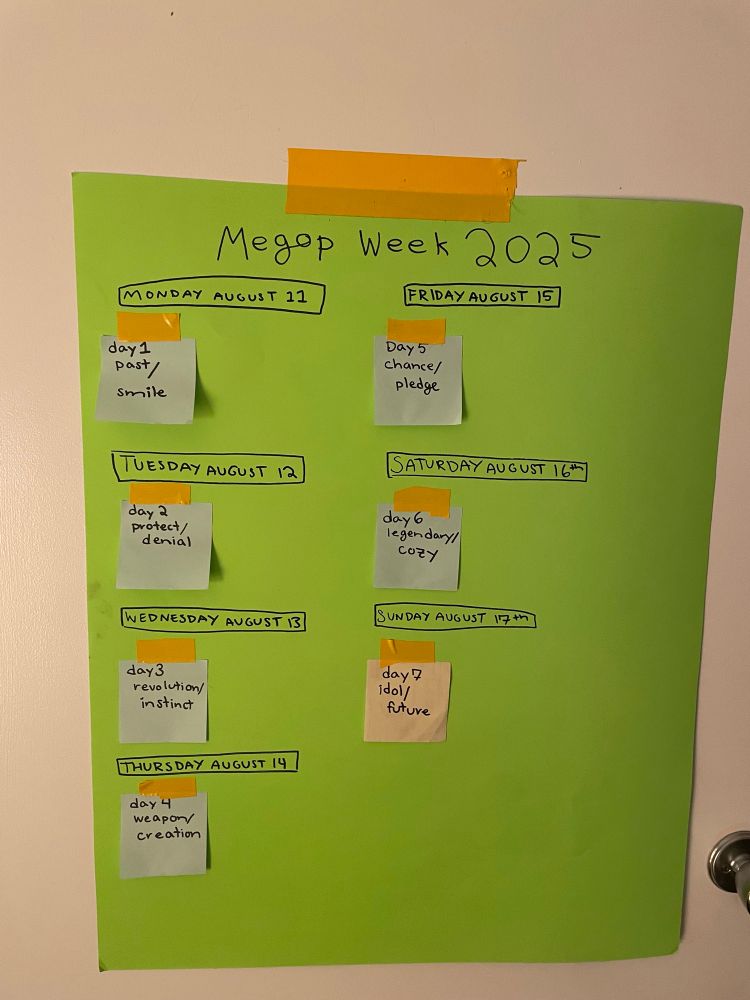 Megop Week 2025
MONDAY AUGUST 11
day 1
past/
smile
TUESDAY AUGUST 12
day 2
protect/
denial
WEDNESDAY AUGUST 13
day 3
revolution/
instinct
THURSDAY AUGUST 14
day 4
weapon/
creation
FRIDAY AUGUST 15
Day 5
chance/
pledge
SATURDAY AUGUST 16th
day 6
legendary/
cozy
SUNDAY AUGUST 17th
day 7
idol/
future